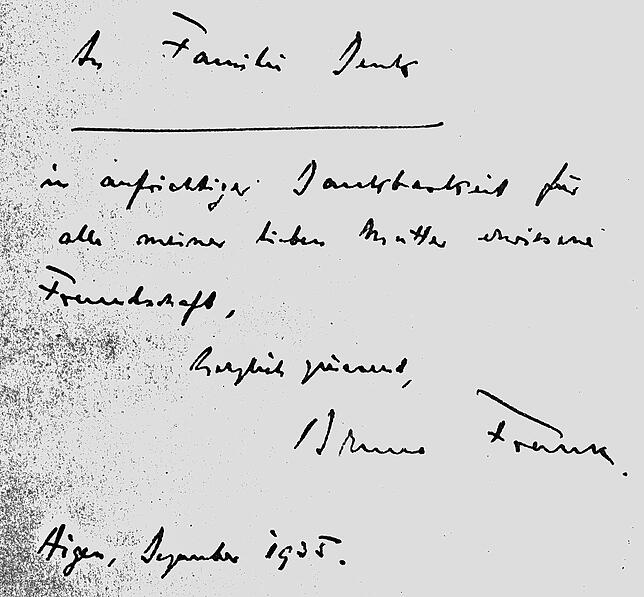 An Familie Denk
in aufrichtiger Dankbarkeit für
alle meiner lieben Mutter erwiesene
Freundschaft,
herzlich grüssend,
Bruno Frank.
Aigen, Dezember 1935.